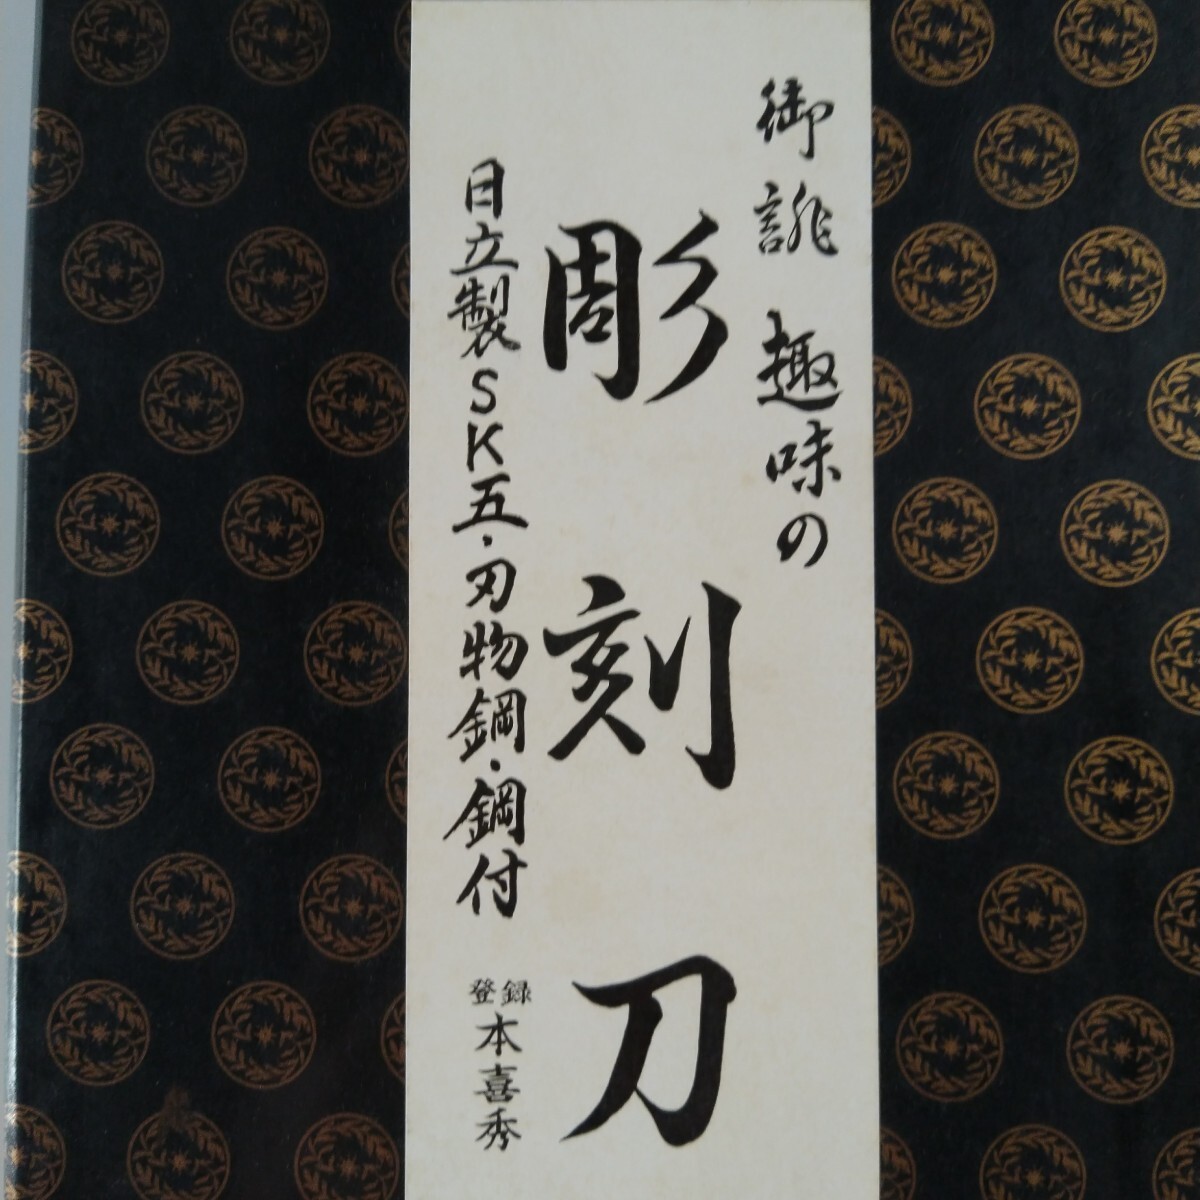 御誂 趣味の
彫刻刀
日立製SK五・刃物鋼・鋼付
登録
本喜秀